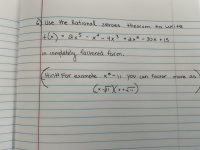 6) Use the Rational zeroes theorem to write
f(x) = 2x⁵ - x⁴ - 4x³ + 2x² - 30x + 15
in completely factored form.
(Hint: For example x² - 11 you can factor more as
(x-√11)(x+√11)